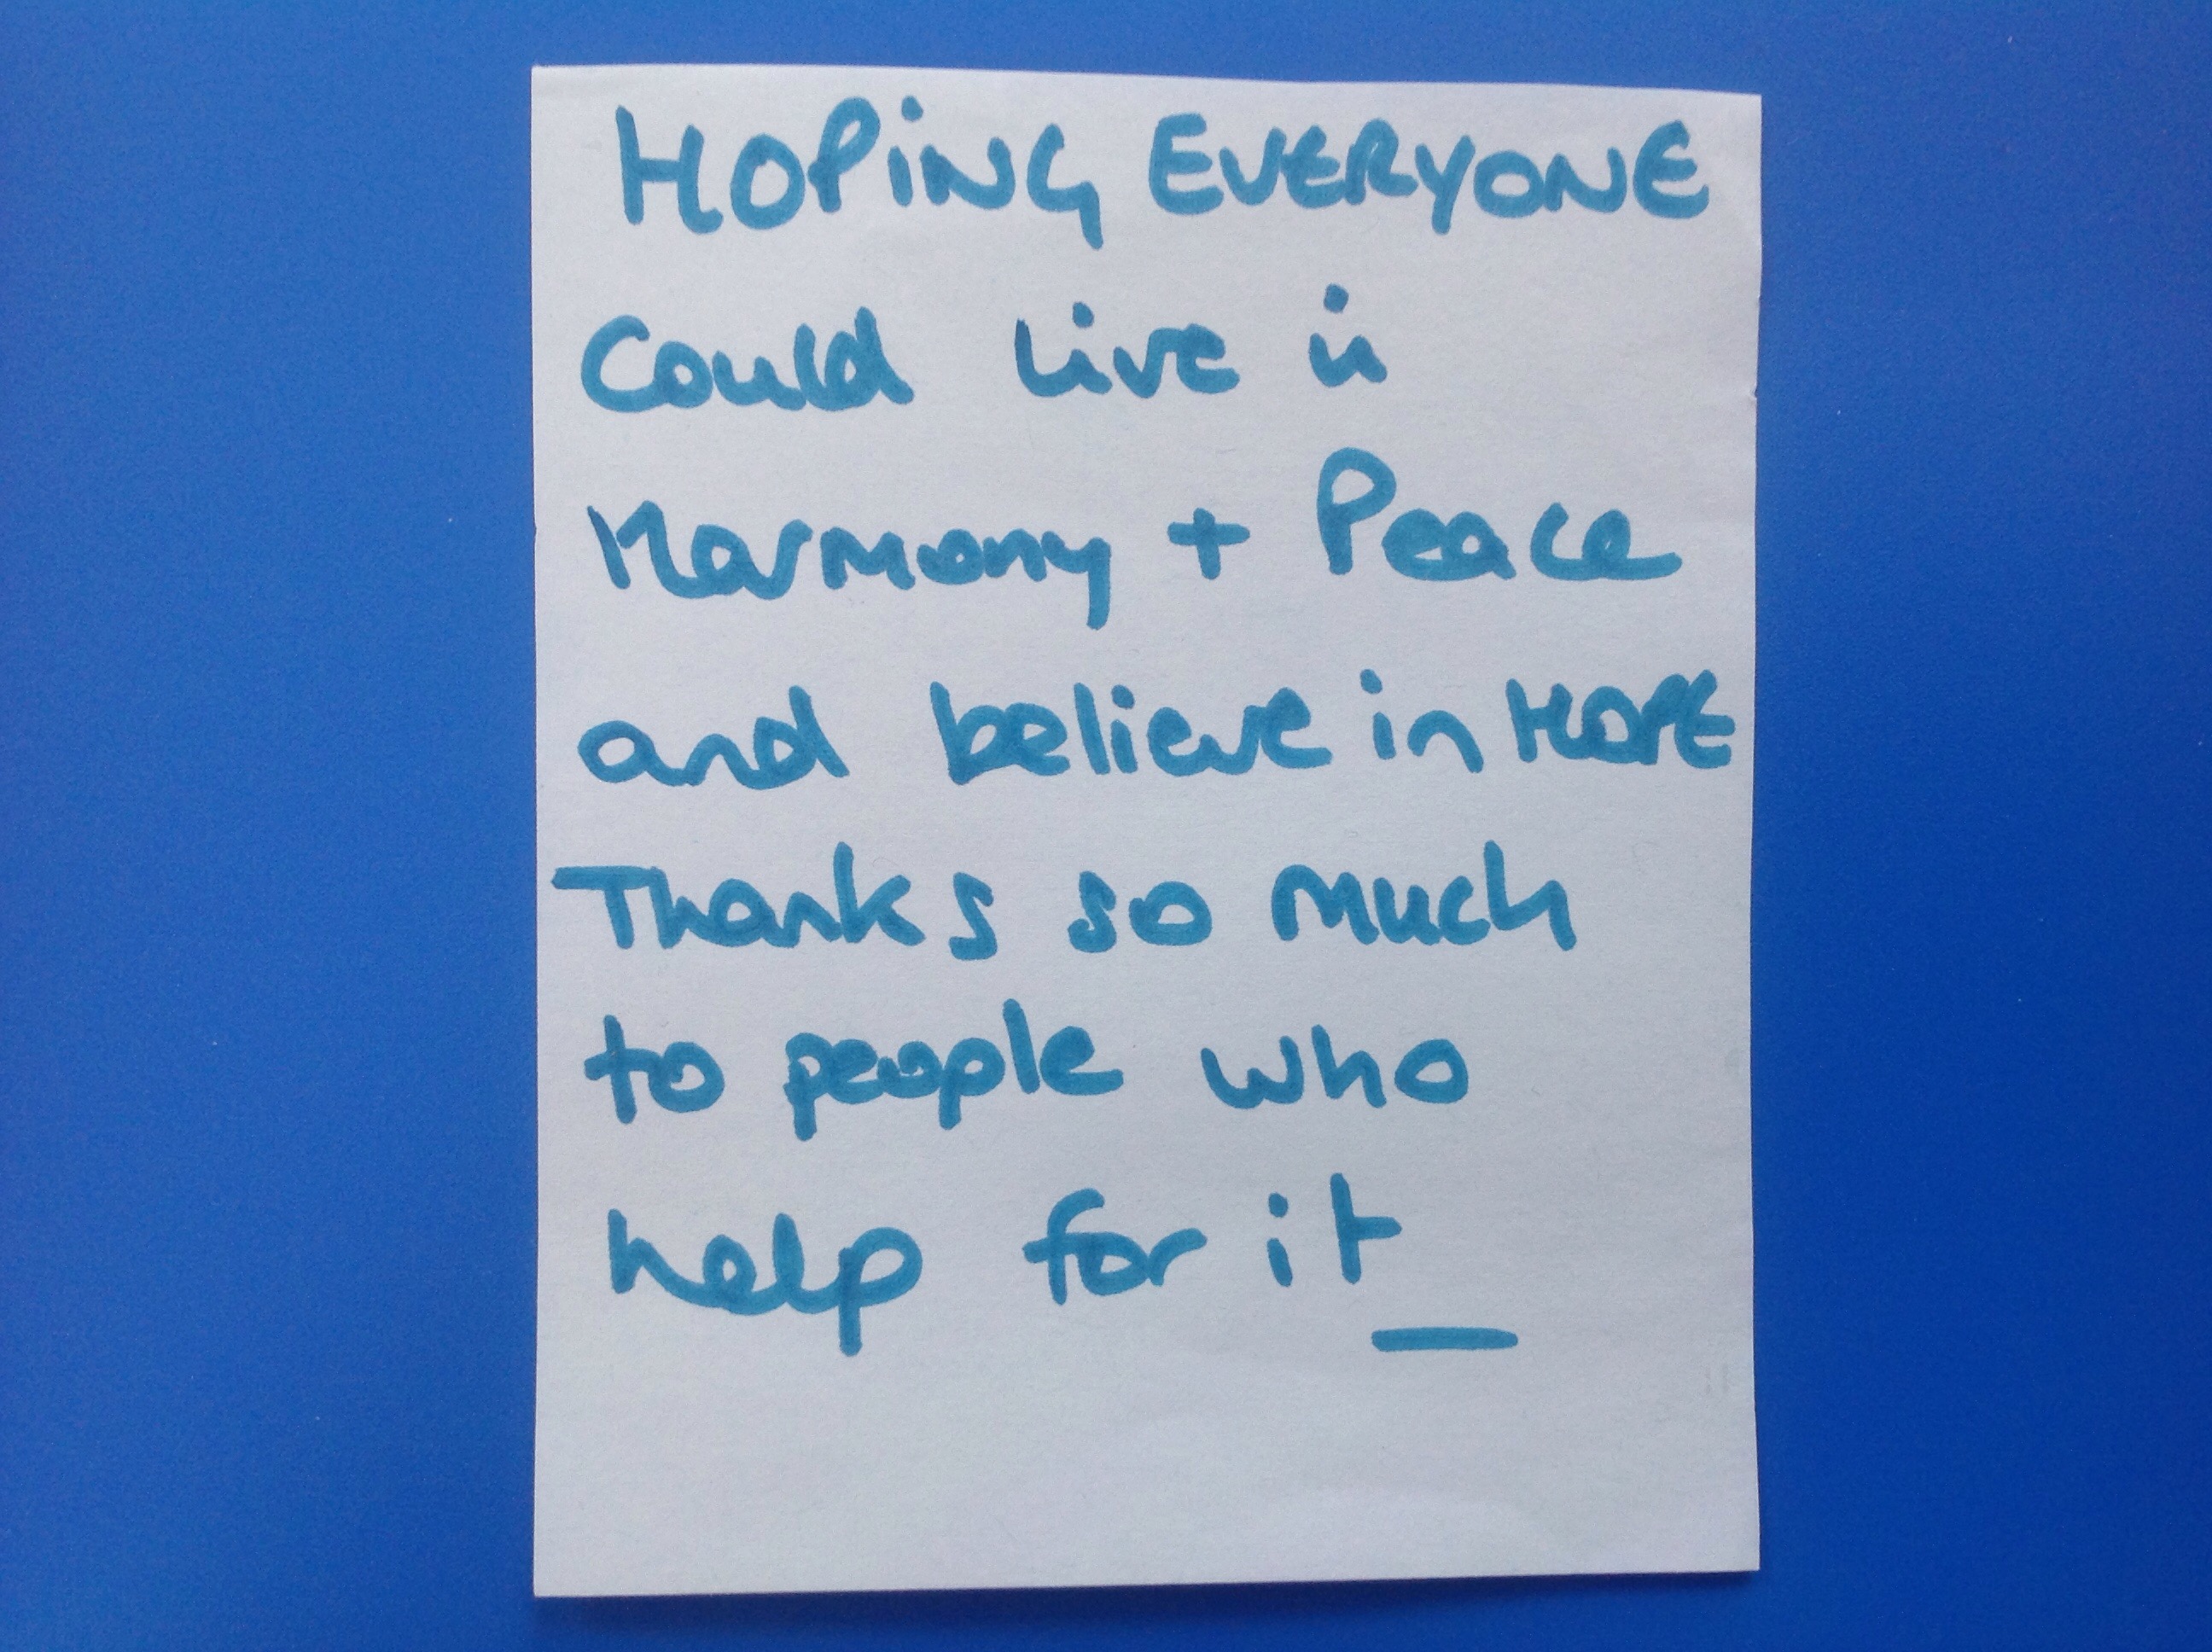 HOPING EVERYONE
Could Live in
Harmony + Peace
and believe in HOPE
Thanks so much
to people who
help for it_